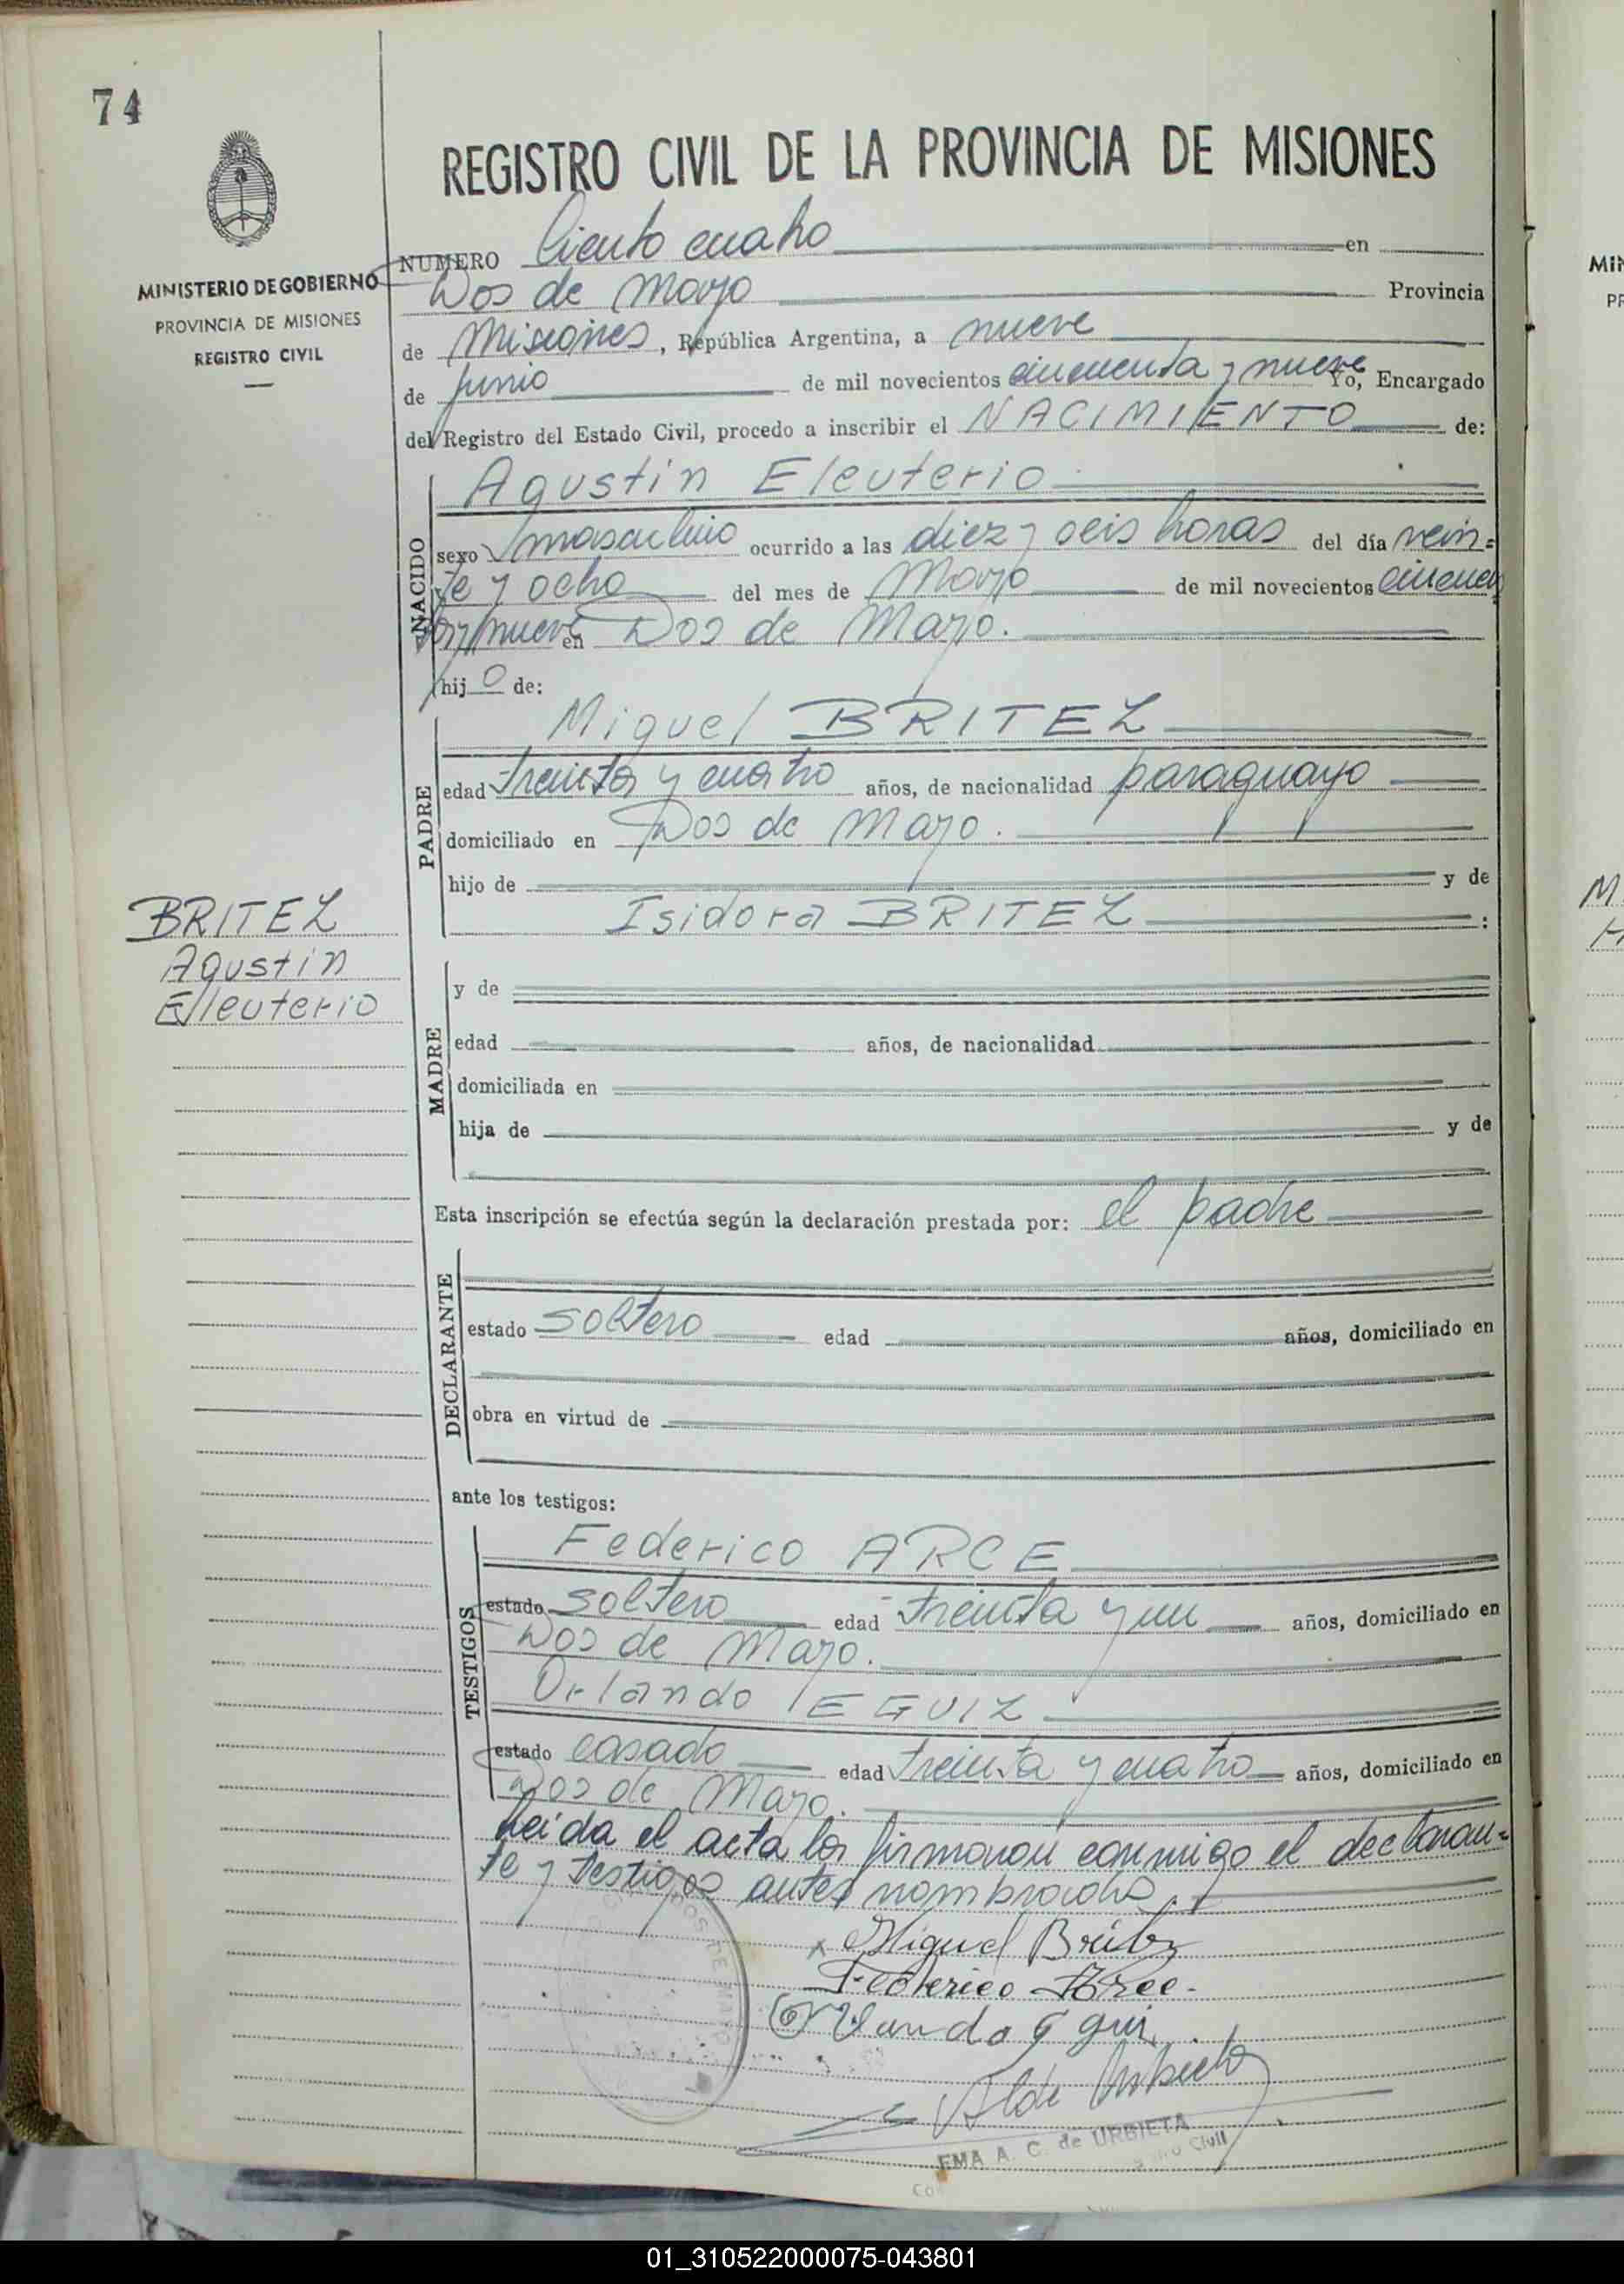 74
REGISTRO CIVIL DE LA PROVINCIA DE MISIONES
MINISTERIO DE GOBIERNO
PROVINCIA DE MISIONES
REGISTRO CIVIL
NUMERO Ciento cuatro en
Dos de Mayo Provincia
de Misiones, República Argentina, a nueve
de Junio de mil novecientos cincuenta y nueve Yo, Encargado
del Registro del Estado Civil, procedo a inscribir el NACIMIENTO de:
NACIDO
Agustin Eleuterio
sexo masculino ocurrido a las diez y seis horas del día vein=
te y ocho del mes de Mayo de mil novecientos cincuen
ta y nueve en Dos de Mayo.
hijo de:
PADRE
Miguel BRITEZ
edad treinta y cuatro años, de nacionalidad paraguayo
domiciliado en Dos de Mayo.
hijo de y de
Isidora BRITEZ :
BRITEZ
Agustin
Eleuterio
MADRE
y de
edad años, de nacionalidad
domiciliada en
hija de y de
Esta inscripción se efectúa según la declaración prestada por: el padre
DECLARANTE
estado soltero edad años, domiciliado en
obra en virtud de
ante los testigos:
TESTIGOS
Federico ARCE
estado soltero edad treinta y un años, domiciliado en
Dos de Mayo.
Orlando EGUIZ
estado casado edad treinta y cuatro años, domiciliado en
Dos de Mayo.
Leida el acta la firmaron conmigo el declaran=
te y testigos antes nombrados.
Miguel Britez
Federico Arce.
Orlando Egui
EMA A. C. de URBIETA
Civil
01_310522000075-043801